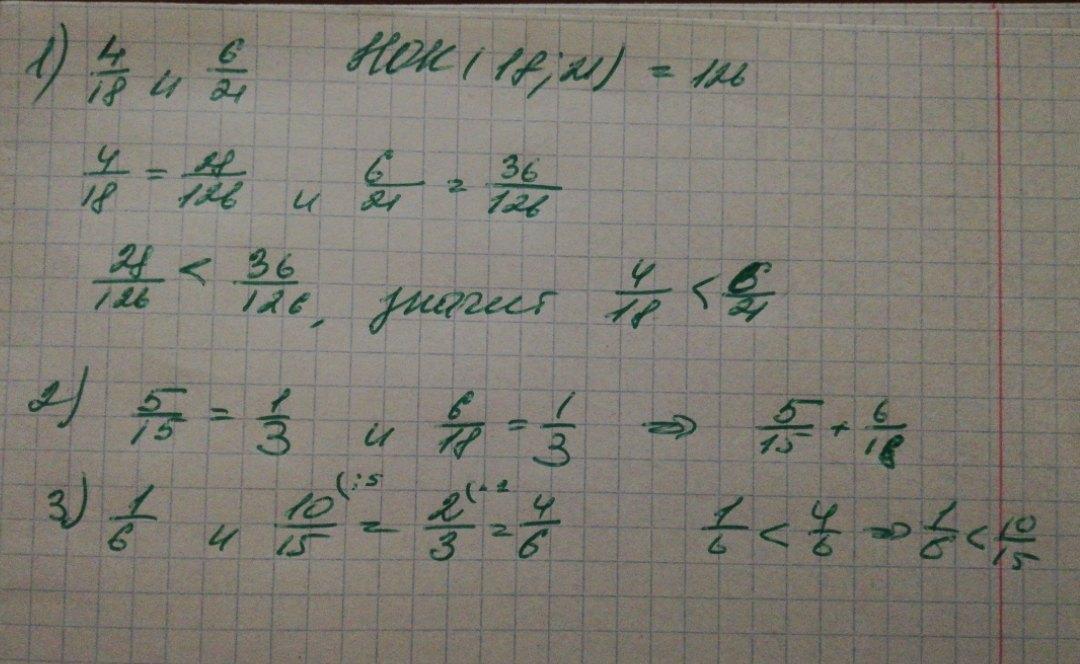 1) 4/18 и 6/21 НОК (18; 21) = 126
4/18 = 28/126 и 6/21 = 36/126
28/126 < 36/126, значит 4/18 < 6/21
2) 5/15 = 1/3 и 6/18 = 1/3 ⇒ 5/15 + 6/18
3) 1/6 и 10/15 (:5 = 2/3 (·2 = 4/6 1/6 < 4/6 ⇒ 1/6 < 10/15